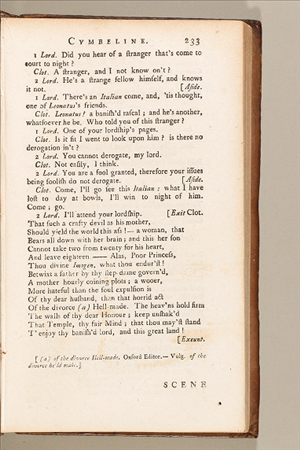 CYMBELINE. 233
1 Lord. Did you hear of a ſtranger that's come to
court to night?
Clot. A ſtranger, and I not know on't?
2 Lord. He's a ſtrange fellow himſelf, and knows
it not. [Aſide.
1 Lord. There's an Italian come, and, 'tis thought,
one of Leonatus's friends.
Clot. Leonatus! a baniſh'd raſcal; and he's another,
whatſoever he be. Who told you of this ſtranger?
1 Lord. One of your lordſhip's pages.
Clot. Is it fit I went to look upon him? is there no
derogation in't?
2 Lord. You cannot derogate, my lord.
Clot. Not eaſily, I think.
2 Lord. You are a fool granted, therefore your iſſues
being fooliſh do not derogate. [Aſide.
Clot. Come, I'll go ſee this Italian: what I have
loſt to day at bowls, I'll win to night of him.
Come; go.
2 Lord. I'll attend your lordſhip. [Exit Clot.
That ſuch a crafty devil as his mother,
Should yield the world this aſs!— a woman, that
Bears all down with her brain; and this her ſon
Cannot take two from twenty for his heart,
And leave eighteen —— Alas, Poor Princeſs,
Thou divine Imogen, what thou endur'ſt!
Betwixt a father by thy ſtep-dame govern'd,
A mother hourly coining plots; a wooer,
More hateful than the foul expulſion is
Of thy dear husband, than that horrid act
Of the divorce (a) Hell-made. The heav'ns hold firm
The walls of thy dear Honour; keep unſhak'd
That Temple, thy fair Mind; that thou may'ſt ſtand
T' enjoy thy baniſh'd lord, and this great land!
[Exeunt.
[(a) of the divorce Hell-made. Oxford Editor.— Vulg. of the
divorce he'ld make.]
SCENE